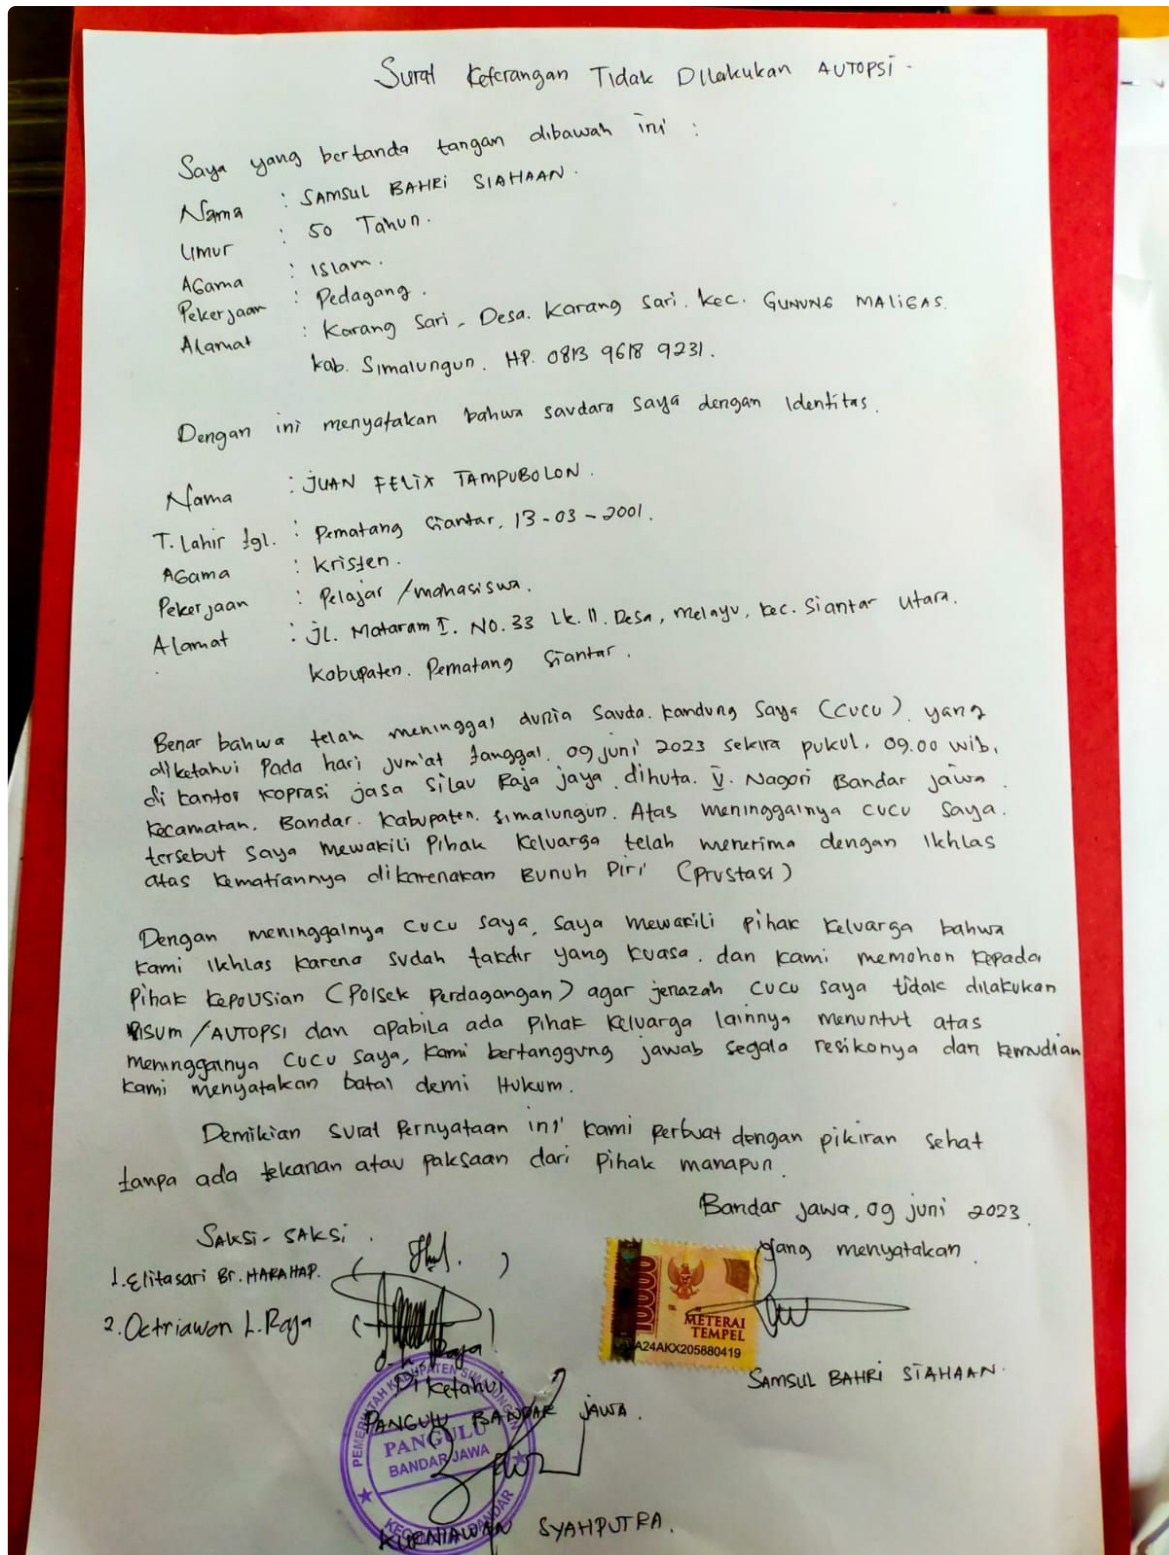 Surat Keterangan Tidak Dilakukan AUTOPSI.
Saya yang bertanda tangan dibawah ini :
Nama : SAMSUL BAHRI SIAHAAN.
Umur : 50 Tahun.
AGama : Islam.
Pekerjaan : Pedagang.
Alamat : Karang Sari - Desa. Karang Sari. Kec. GUNUNG MALIGAS.
Kab. Simalungun. HP. 0813 9618 9231.
Dengan ini menyatakan bahwa saudara saya dengan Identitas.
Nama : JUAN FELIX TAMPUBOLON.
T. Lahir tgl. : Pematang Siantar, 13-03-2001.
AGama : Kristen.
Pekerjaan : Pelajar /mahasiswa.
Alamat : JL. Mataram I. NO.33 Lk. II. Desa, Melayu, Kec. Siantar Utara.
Kabupaten. Pematang Siantar.
Benar bahwa telah meninggal dunia Sauda. Kandung Saya (CUCU) yang
diketahui Pada hari Jum'at tanggal. 09 juni 2023 sekira pukul. 09.00 wib.
di kantor Koprasi jasa Silau Raja jaya dihuta. V. Nagori Bandar jawa.
Kecamatan. Bandar. Kabupaten. Simalungun. Atas meninggalnya cucu saya.
tersebut saya mewakili Pihak Keluarga telah menerima dengan Ikhlas
atas Kematiannya dikarenakan Bunuh Diri (Prustasi)
Dengan meninggalnya cucu saya, saya mewakili pihak Keluarga bahwa
kami Ikhlas karena sudah takdir yang kuasa. dan kami memohon kepada
Pihak Kepolisian (Polsek Perdagangan) agar jenazah cucu saya tidak dilakukan
VISUM /AUTOPSI dan apabila ada Pihak Keluarga lainnya menuntut atas
meninggalnya cucu saya, kami bertanggung jawab segala resikonya dan kemudian
kami menyatakan batal demi Hukum.
Demikian Surat Pernyataan ini kami perbuat dengan pikiran sehat
tanpa ada tekanan atau paksaan dari pihak manapun.
Bandar jawa, 09 juni 2023.
Saksi-saksi.
Yang menyatakan
1. Elitasari Br. HARAHAP. ( )
2. Octriawan L. Raja ( )
10000
METERAI
TEMPEL
A24AKX205880419
SAMSUL BAHRI SIAHAAN.
Diketahui
PANGULU BANDAR JAWA.
PEMERINTAH KABUPATEN SIMALUNGUN
PANGULU
BANDAR JAWA
KECAMATAN BANDAR
KURNIAWAN SYAHPUTRA.